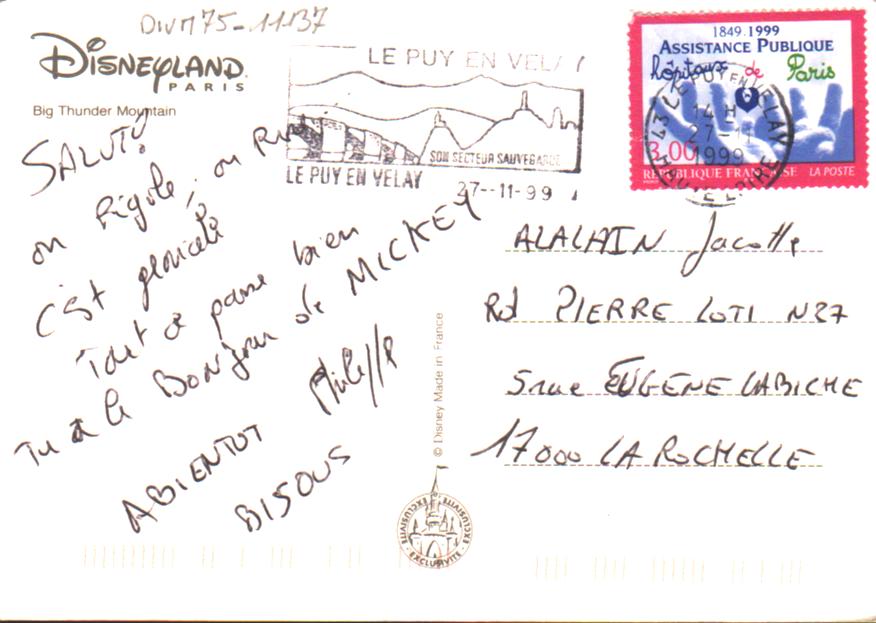 DIVM75-11137
DISNEYLAND
PARIS
Big Thunder Mountain
LE PUY EN VEL
SON SECTEUR SAUVEGARDE
LE PUY EN VELAY
27--11-99
1849.1999
ASSISTANCE PUBLIQUE
hôpitaux de Paris
3,00
RÉPUBLIQUE FRANÇAISE LA POSTE
43 LE PUY EN VELAY
14 H
27-11
1999
HAUTE LOIRE
SALUT!
on Rigole, on
C'est génial
Tout ce passe bien
Tu a le Bonjour de MICKEY
Philippe
ABIENTOT
BISOUS
ALALAIN Jacotte
Rd PIERRE LOTI N27
5 rue EUGENE LABICHE
17000 LA ROCHELLE
© Disney Made in France
EXCLUSIVITE EXCLUSIVITE